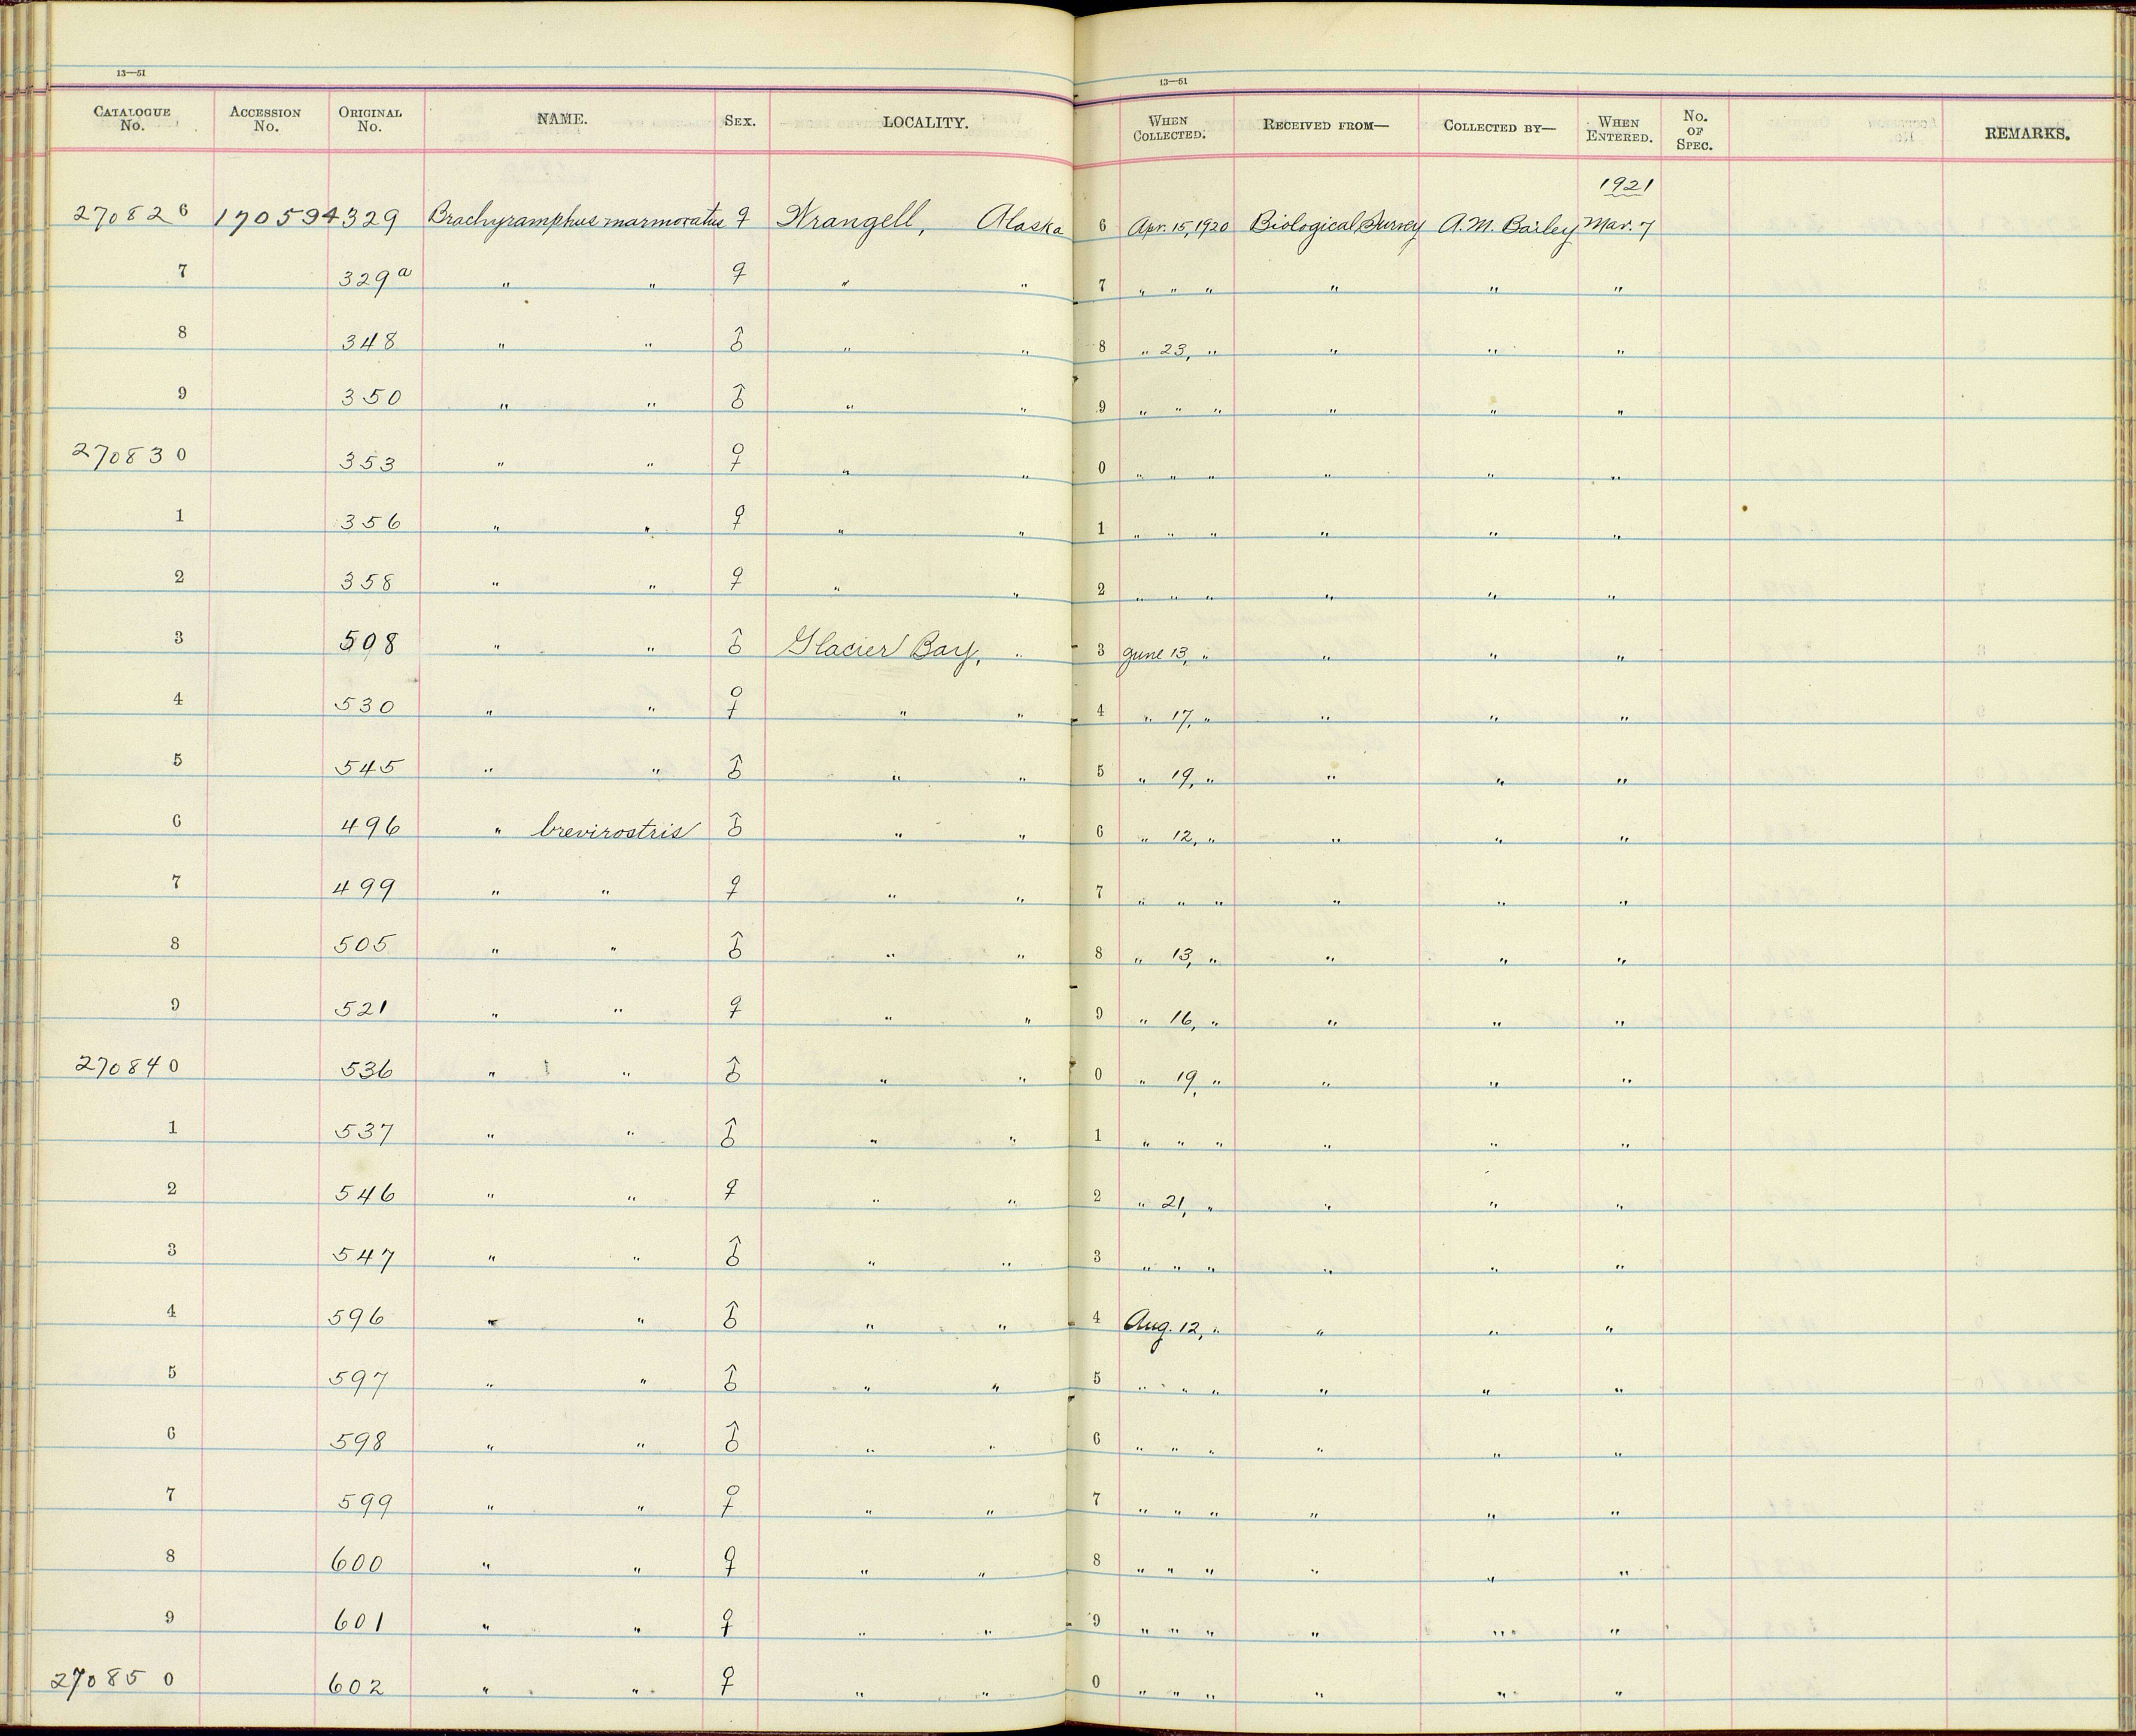 13—51 13—51
CATALOGUE No. ACCESSION No. ORIGINAL No. NAME. SEX. LOCALITY. WHEN COLLECTED. RECEIVED FROM— COLLECTED BY— WHEN ENTERED. No. OF SPEC. REMARKS.
1921
270826 170594 329 Brachyramphus marmoratus ♀ Wrangell, Alaska 6 Apr. 15, 1920 Biological Survey A.M. Bailey Mar. 7
7 329a " " ♀ " " 7 " " " " " "
8 348 " " ♂ " " 8 " 23, " " " "
9 350 " " ♂ " " 9 " " " " " "
270830 353 " " ♀ " " 0 " " " " " "
1 356 " " ♀ " " 1 " " " " " "
2 358 " " ♀ " " 2 " " " " " "
3 508 " " ♂ Glacier Bay, " 3 June 13, " " " "
4 530 " " ♀ " " 4 " 17, " " " "
5 545 " " ♂ " " 5 " 19, " " " "
6 496 " brevirostris ♂ " " 6 " 12, " " " "
7 499 " " ♀ " " 7 " " " " " "
8 505 " " ♂ " " 8 " 13, " " " "
9 521 " " ♀ " " 9 " 16, " " " "
270840 536 " " ♂ " " 0 " 19, " " " "
1 537 " " ♂ " " 1 " " " " " "
2 546 " " ♀ " " 2 " 21, " " " "
3 547 " " ♂ " " 3 " " " " " "
4 596 " " ♂ " " 4 Aug. 12, " " " "
5 597 " " ♂ " " 5 " " " " " "
6 598 " " ♂ " " 6 " " " " " "
7 599 " " ♀ " " 7 " " " " " "
8 600 " " ♀ " " 8 " " " " " "
9 601 " " ♀ " " 9 " " " " " "
270850 602 " " ♀ " " 0 " " " " " "